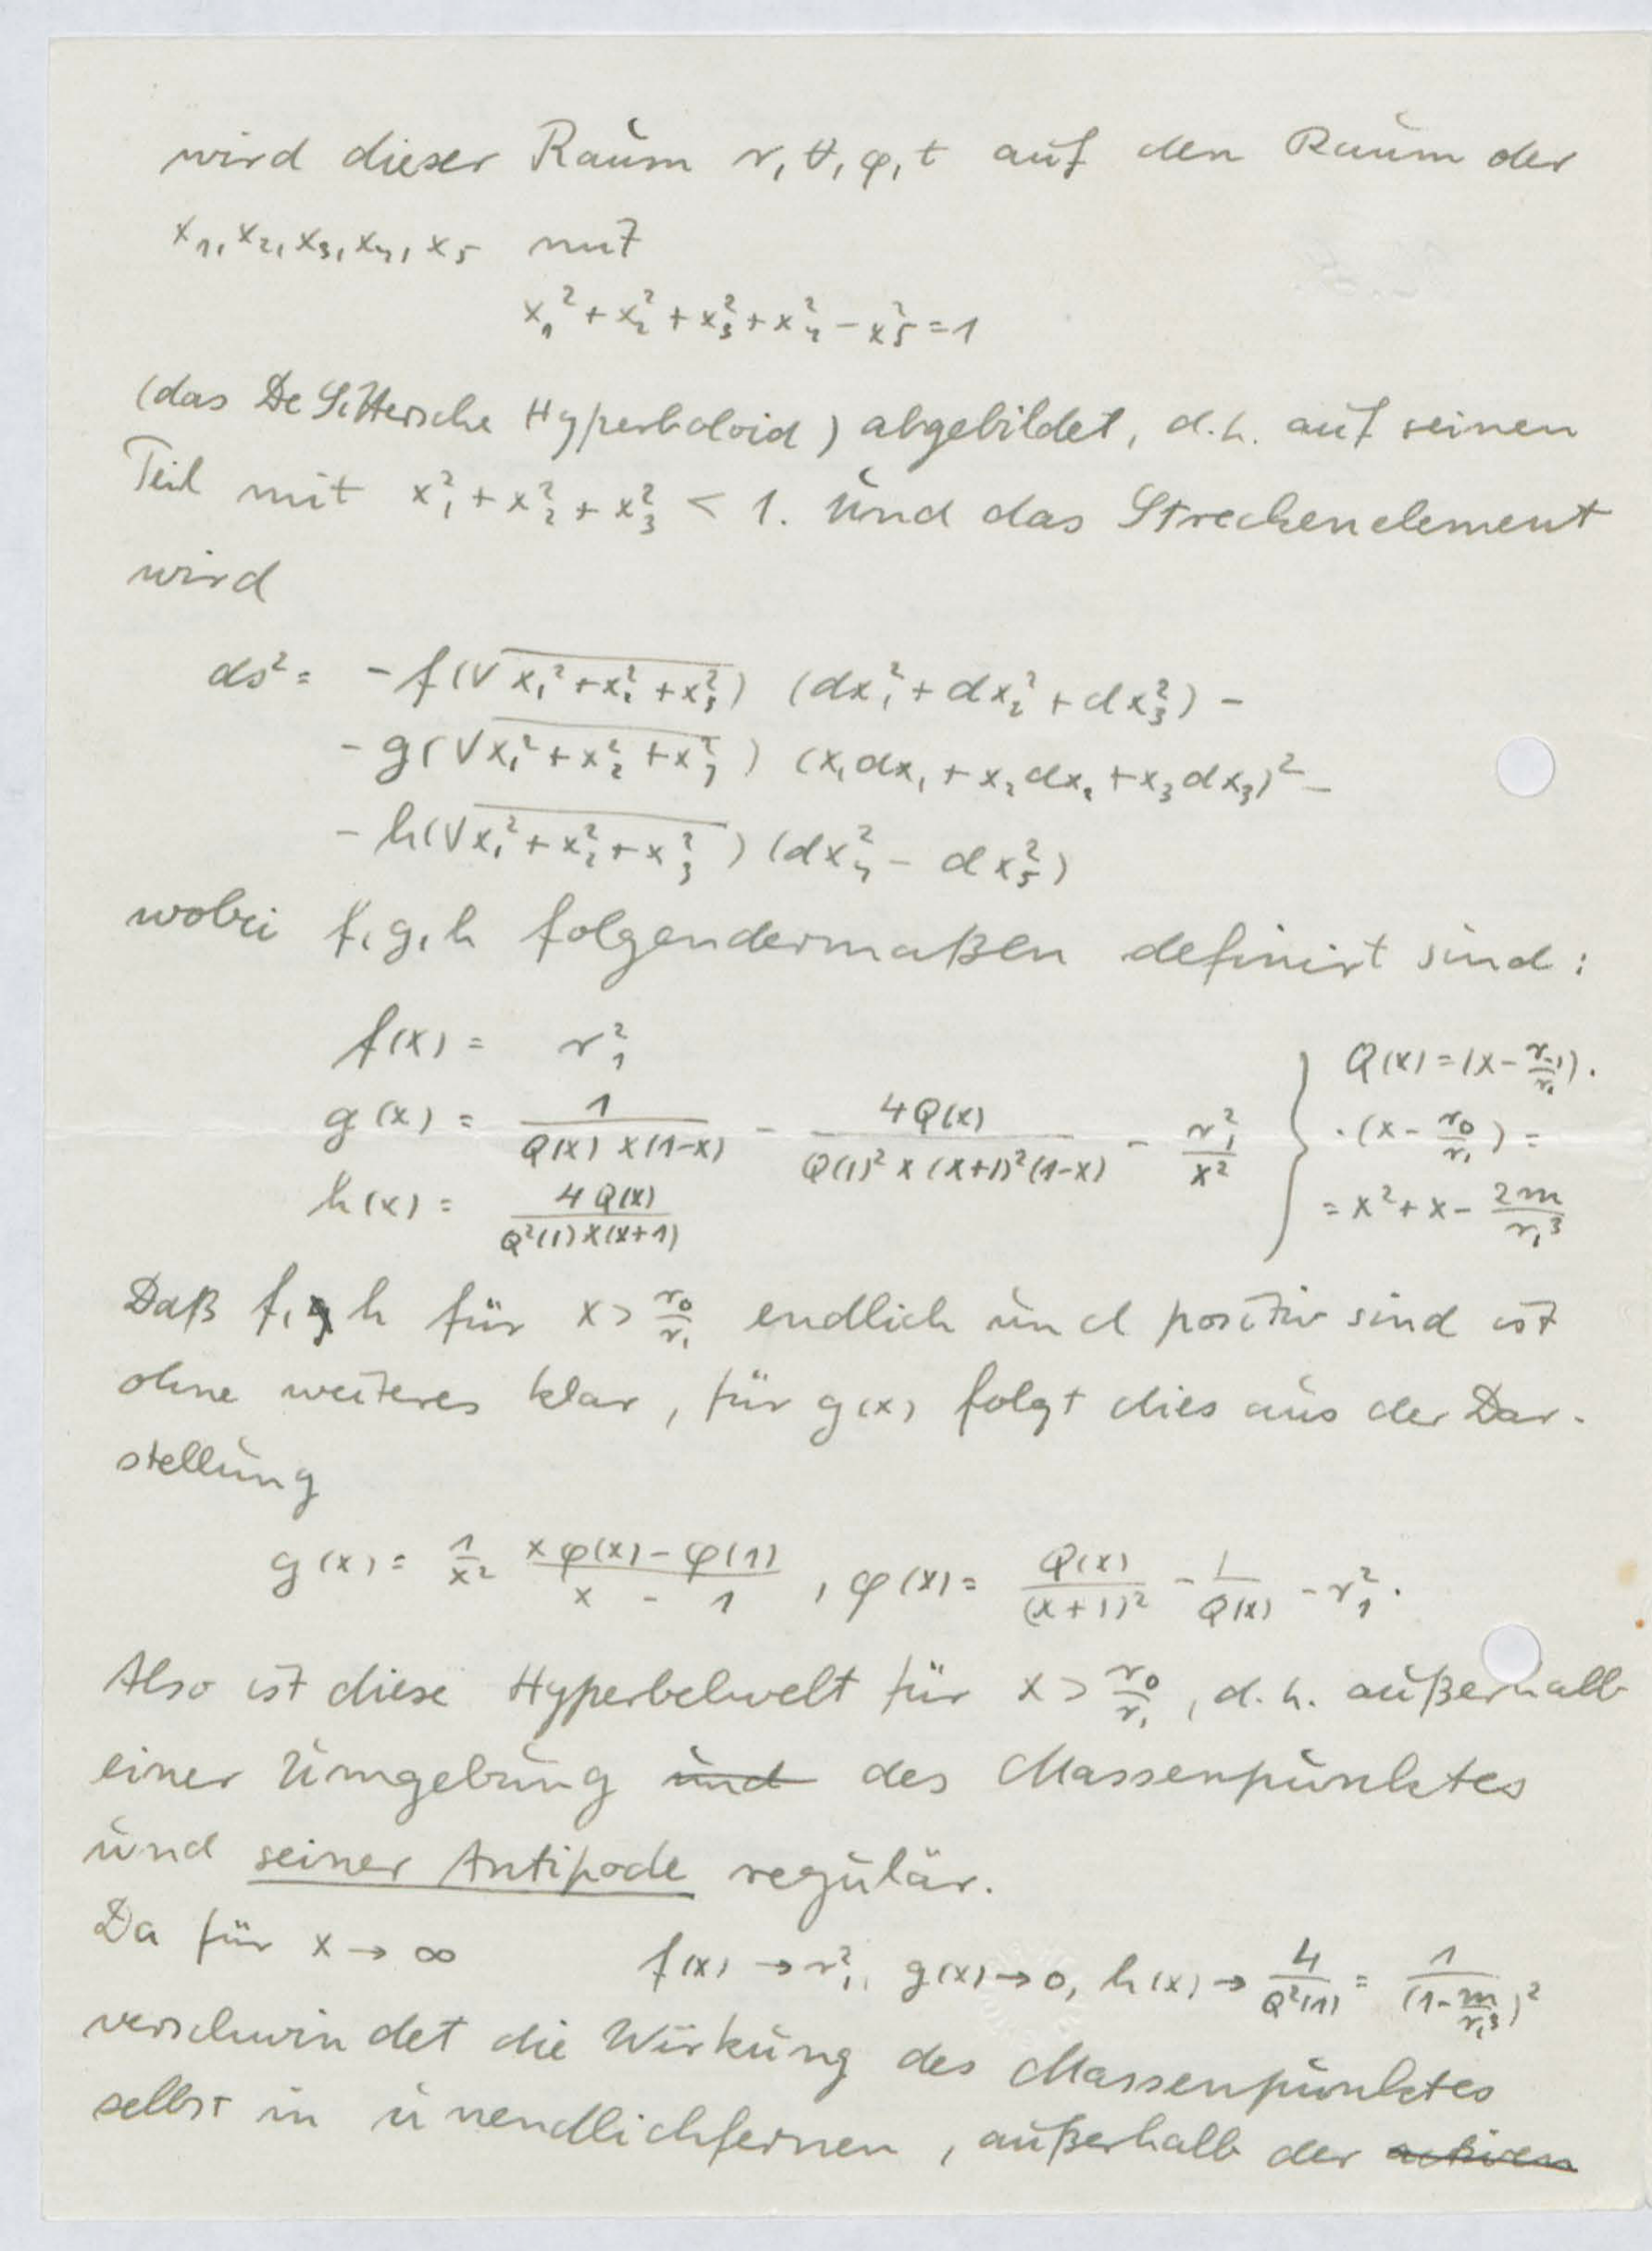 wird dieser Raum r, ϑ, φ, t auf den Raum der
x₁, x₂, x₃, x₄, x₅ mit
x₁² + x₂² + x₃² + x₄² − x₅² = 1
(das De Sittersche Hyperboloid) abgebildet, d.h. auf seinen
Teil mit x₁² + x₂² + x₃² < 1. Und das Streckenelement
wird
ds² = − f(√x₁² + x₂² + x₃²) (dx₁² + dx₂² + dx₃²) −
− g(√x₁² + x₂² + x₃²) (x₁dx₁ + x₂dx₂ + x₃dx₃)² −
− h(√x₁² + x₂² + x₃²) (dx₄² − dx₅²)
wobei f, g, h folgendermaßen definirt sind:
f(x) = r₁²
g(x) = 1/(Q(x) x(1−x)) − 4Q(x)/(Q(1)² x (x+1)²(1−x)) − r₁²/x²
h(x) = 4Q(x)/(Q²(1) x(x+1))
} Q(x) = (x − r₋₁/r₁) ·
· (x − r₀/r₁) =
= x² + x − 2m/r₁³
Daß f, h für x > r₀/r₁ endlich und positiv sind ist
ohne weiteres klar, für g(x) folgt dies aus der Dar-
stellung
g(x) = 1/x² (xφ(x) − φ(1))/(x − 1), φ(x) = Q(x)/(x+1)² − 1/Q(x) − r₁².
Also ist diese Hyperbelwelt für x > r₀/r₁, d.h. außerhalb
einer Umgebung und des Massenpunktes
und seiner Antipode regulär.
Da für x → ∞ f(x) → r₁², g(x) → 0, h(x) → 4/Q²(1) = 1/(1 − m/r₁³)²
verschwindet die Wirkung des Massenpunktes
selbst in unendlichfernen, außerhalb der